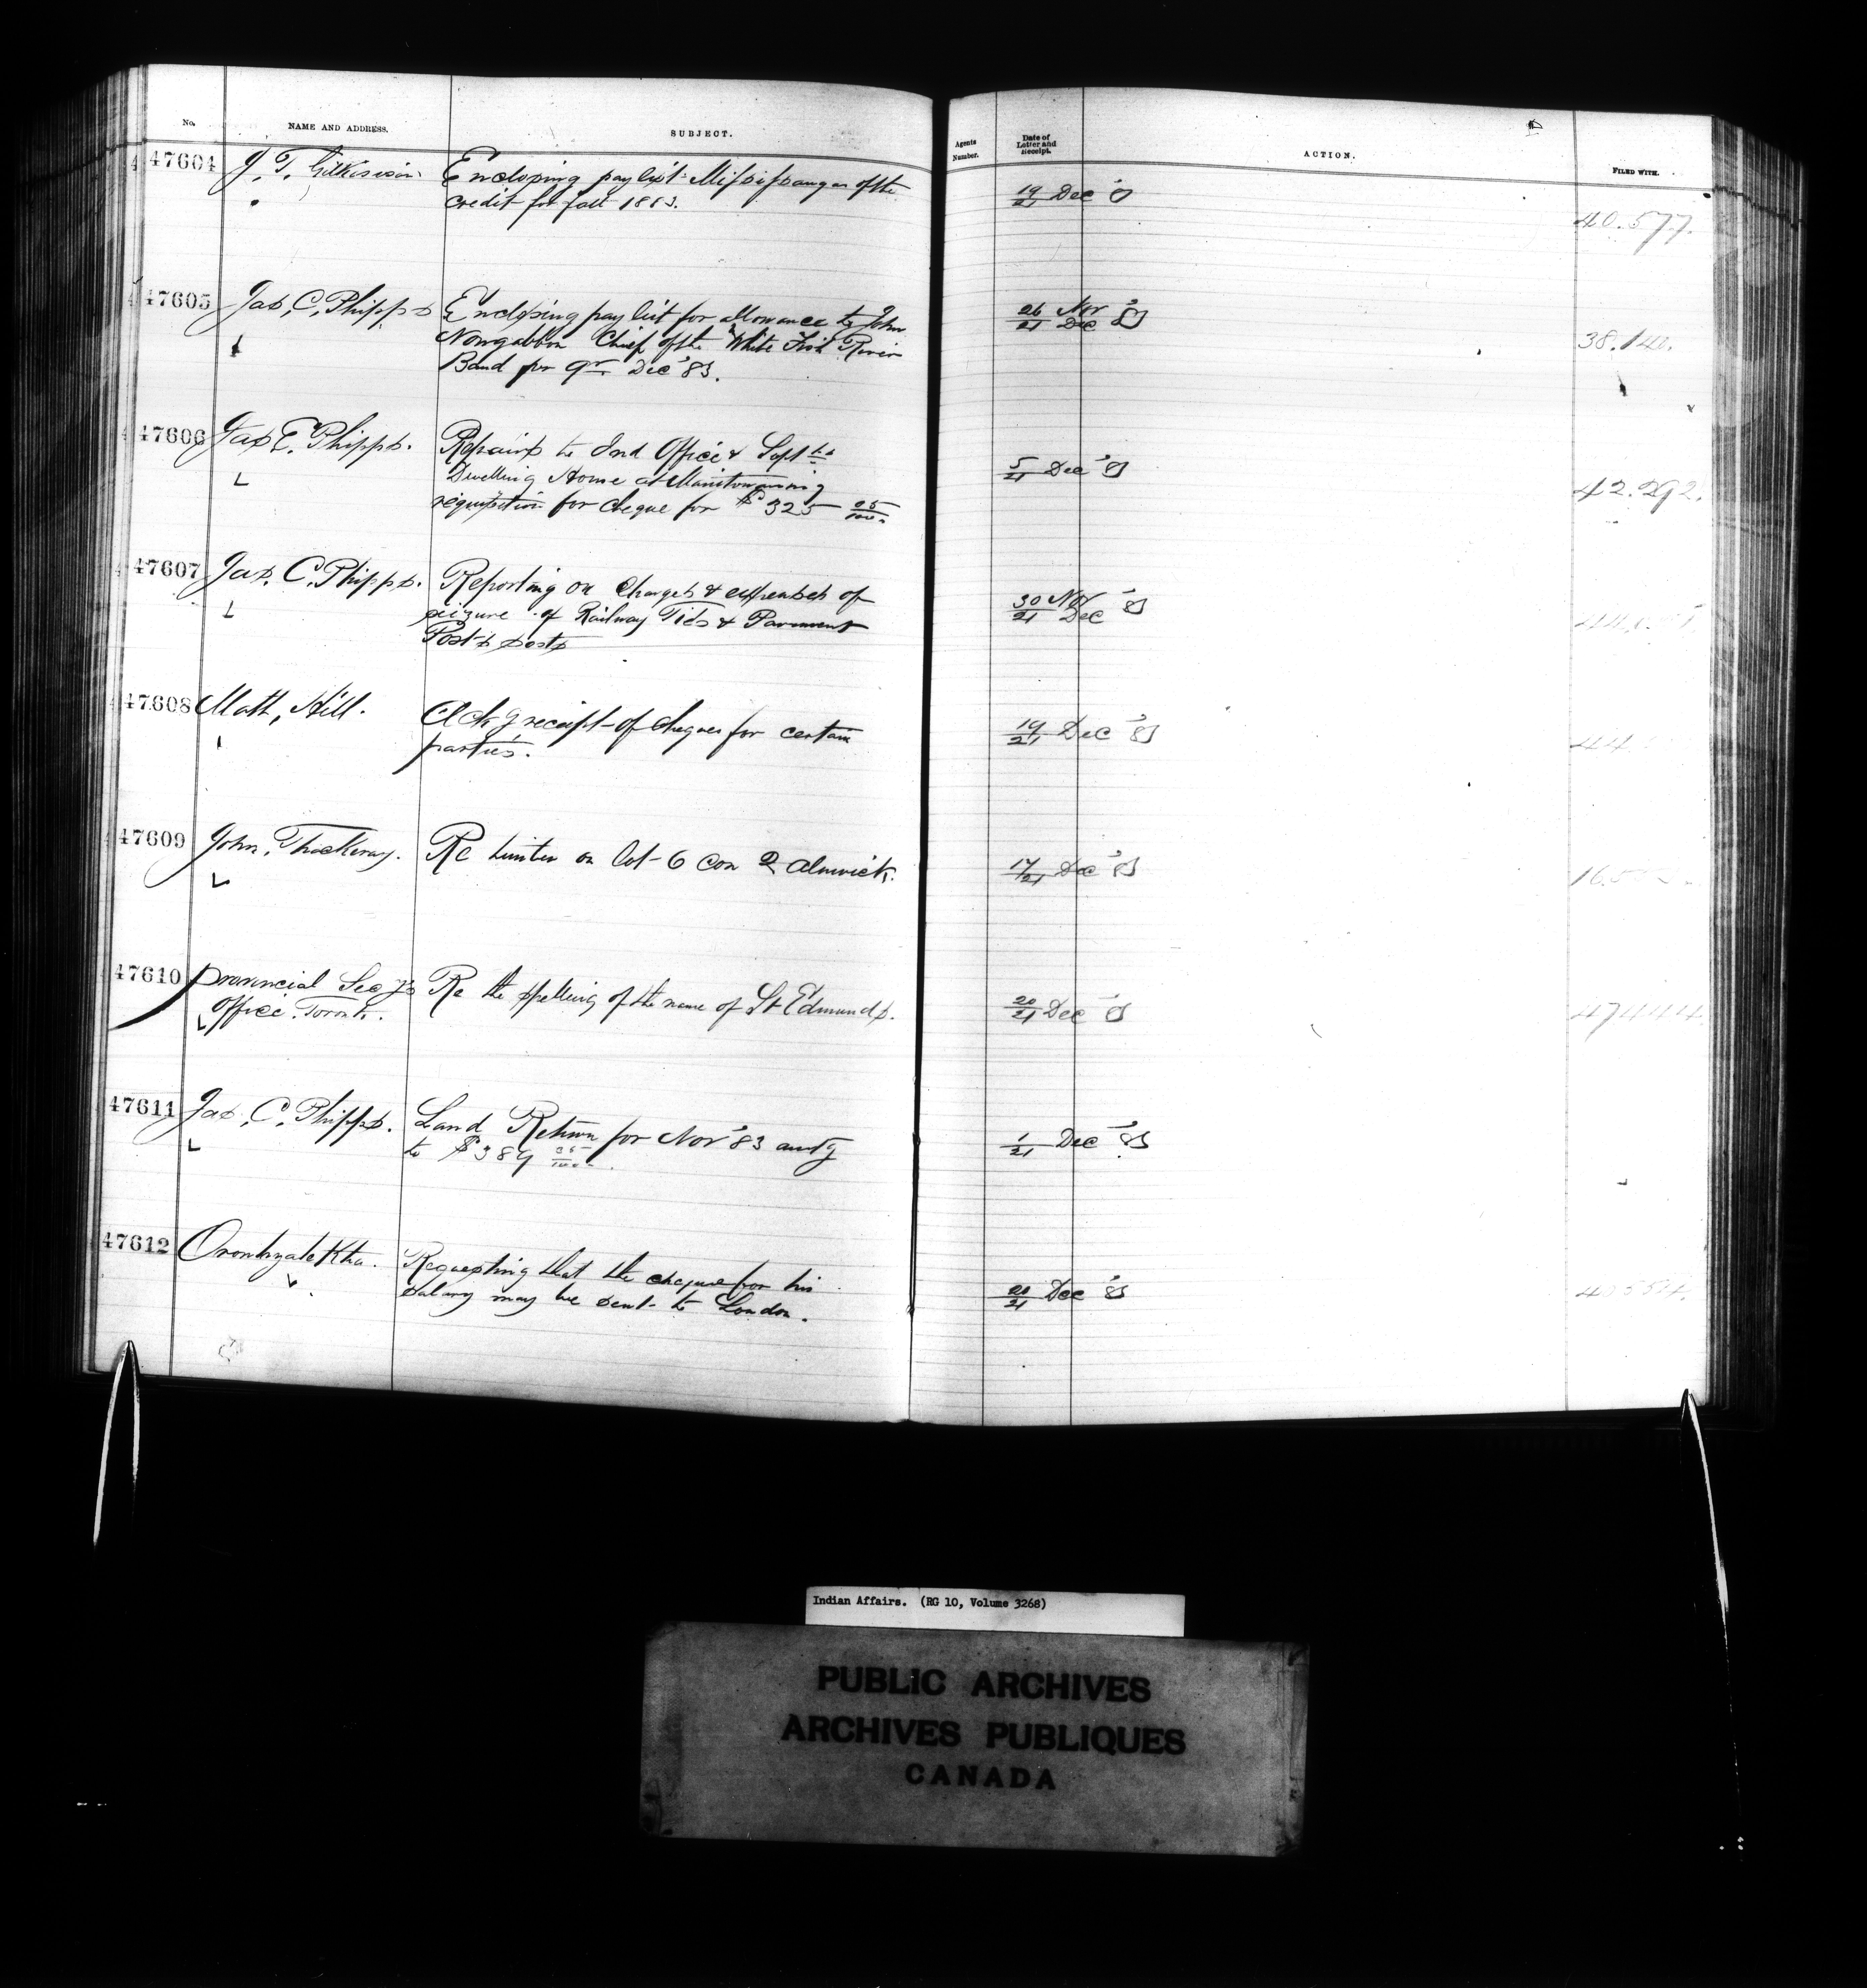 No. NAME AND ADDRESS. SUBJECT. Agents Number. Date of Letter and Receipt. ACTION. FILED WITH.
47604 J. T. Gilkison Enclosing pay list Mississaugas of the 19/21 Dec '83 40.577.
credit for fall 1883.
47605 Jas. C. Phipps Enclosing pay list for allowance to John 26 Nov / 21 Dec '83 38.140.
Nowgabbon Chief of the White Fish River
Band for qr Dec '83.
47606 Jas C. Phipps. Repairs to Ind Office & Supts 5/21 Dec '83 42.292.
Dwelling House at Manitowaning
requisition for cheque for $325 05/100
47607 Jas. C. Phipps. Reporting on charges & expenses of 30 Nov / 21 Dec '83
seizure of Railway Ties &
Posts posts
47608 Matt, Hill. Ackg receipt of cheques for certain 19/21 Dec '83
parties.
47609 John, Thackeray. Re timber on lot 6 Con 2 Alnwick. 17/21 Dec '83
47610 Provincial Secys Re the spelling of the name of St Edmunds. 20/21 Dec '83 47444
Office. Toronto.
47611 Jas, C. Phipps. Land Return for Nov '83 amtg 1/21 Dec '83
to $389
47612 OronhyateKha. Requesting that the cheque for his 20/21 Dec '83
salary may be sent to London.
Indian Affairs. (RG 10, Volume 3268)
PUBLIC ARCHIVES
ARCHIVES PUBLIQUES
CANADA